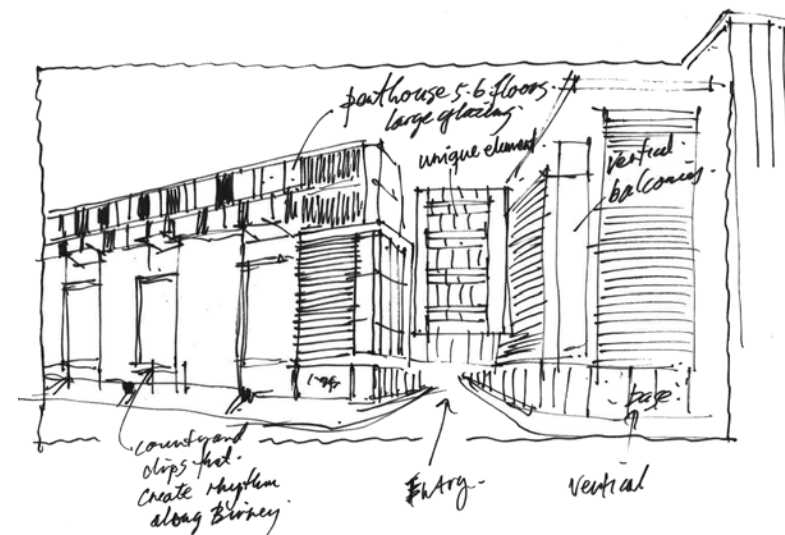 penthouse 5-6 floors.
large glazing.
unique element
vertical
balconies.
base
courtyard
clips that
create rhythm
along Binney.
Entry.
vertical